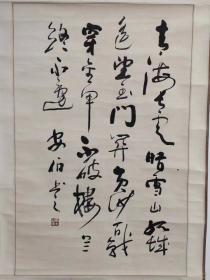 青海长云暗雪山孤城
遥望玉門関黄沙百战
穿金甲不破樓兰
終不還 安伯书